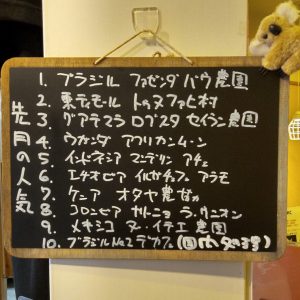 先月の人気
1. ブラジル ファゼンダ バウ農園
2. 東ティモール トゥヌファヒ村
3. グアテマラ ロブスタ セイラン農園
4. ウガンダ アフリカンムーン
5. インドネシア マンデリン アチェ
6. エチオピア イルガチェフェ アラモ
7. ケニア オタヤ農
8. コロンビア ナリーニョ ラ・ウニオン
9. メキシコ ラ・イテエ 農園
10. ブラジルNo.2デカフェ